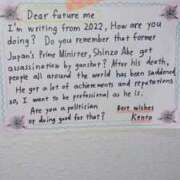 Dear future me
I'm writing from 2022, How are you
doing? Do you remember that former
Japan's Prime Minister, Shinzo Abe got
assassination by gunshot? After his death,
people all around the world has been saddened.
He got a lot of achievements and reputations
so, I want to be professional as he is.
Are you a politician
or doing good for that?
Best wishes
Kento